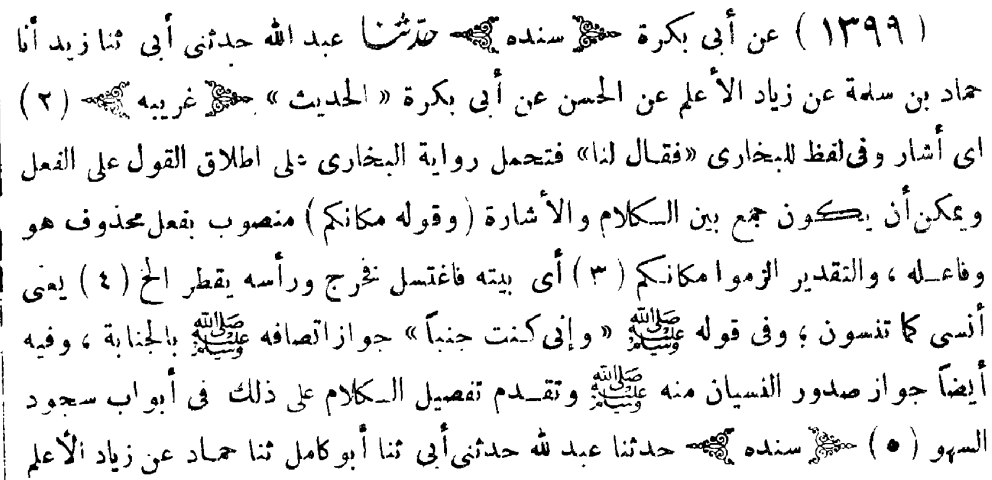 ( ١٣٩٩ ) عن أبى بكرة ﴿ سنده ﴾ حدّثنا عبد الله حدثنى أبى ثنا زيد أنا
حماد بن سلمة عن زياد الأعلم عن الحسن عن أبى بكرة « الحديث » ﴿ غريبه ﴾ (٢)
اى أشار وفى لفظ للبخارى «فقال لنا» فتحمل رواية البخارى على اطلاق القول على الفعل
ويمكن أن يكون جمع بين الكلام والأشارة ( وقوله مكانكم ) منصوب بفعل محذوف هو
وفاعله ، والتقدير الزموا مكانكم ( ٣ ) أى بيته فاغتسل فخرج ورأسه يقطر الخ ( ٤ ) يعنى
أنسى كما تنسون ؛ وفى قوله ﷺ « وإنى كنت جنباً » جواز اتصافه ﷺ بالجنابة ، وفيه
أيضاً جواز صدور النسيان منه ﷺ وتقدم تفصيل الكلام على ذلك فى أبواب سجود
السهو ( ٥ ) ﴿ سنده ﴾ حدثنا عبد لله حدثنى أبى ثنا أبو كامل ثنا حماد عن زياد الأعلم